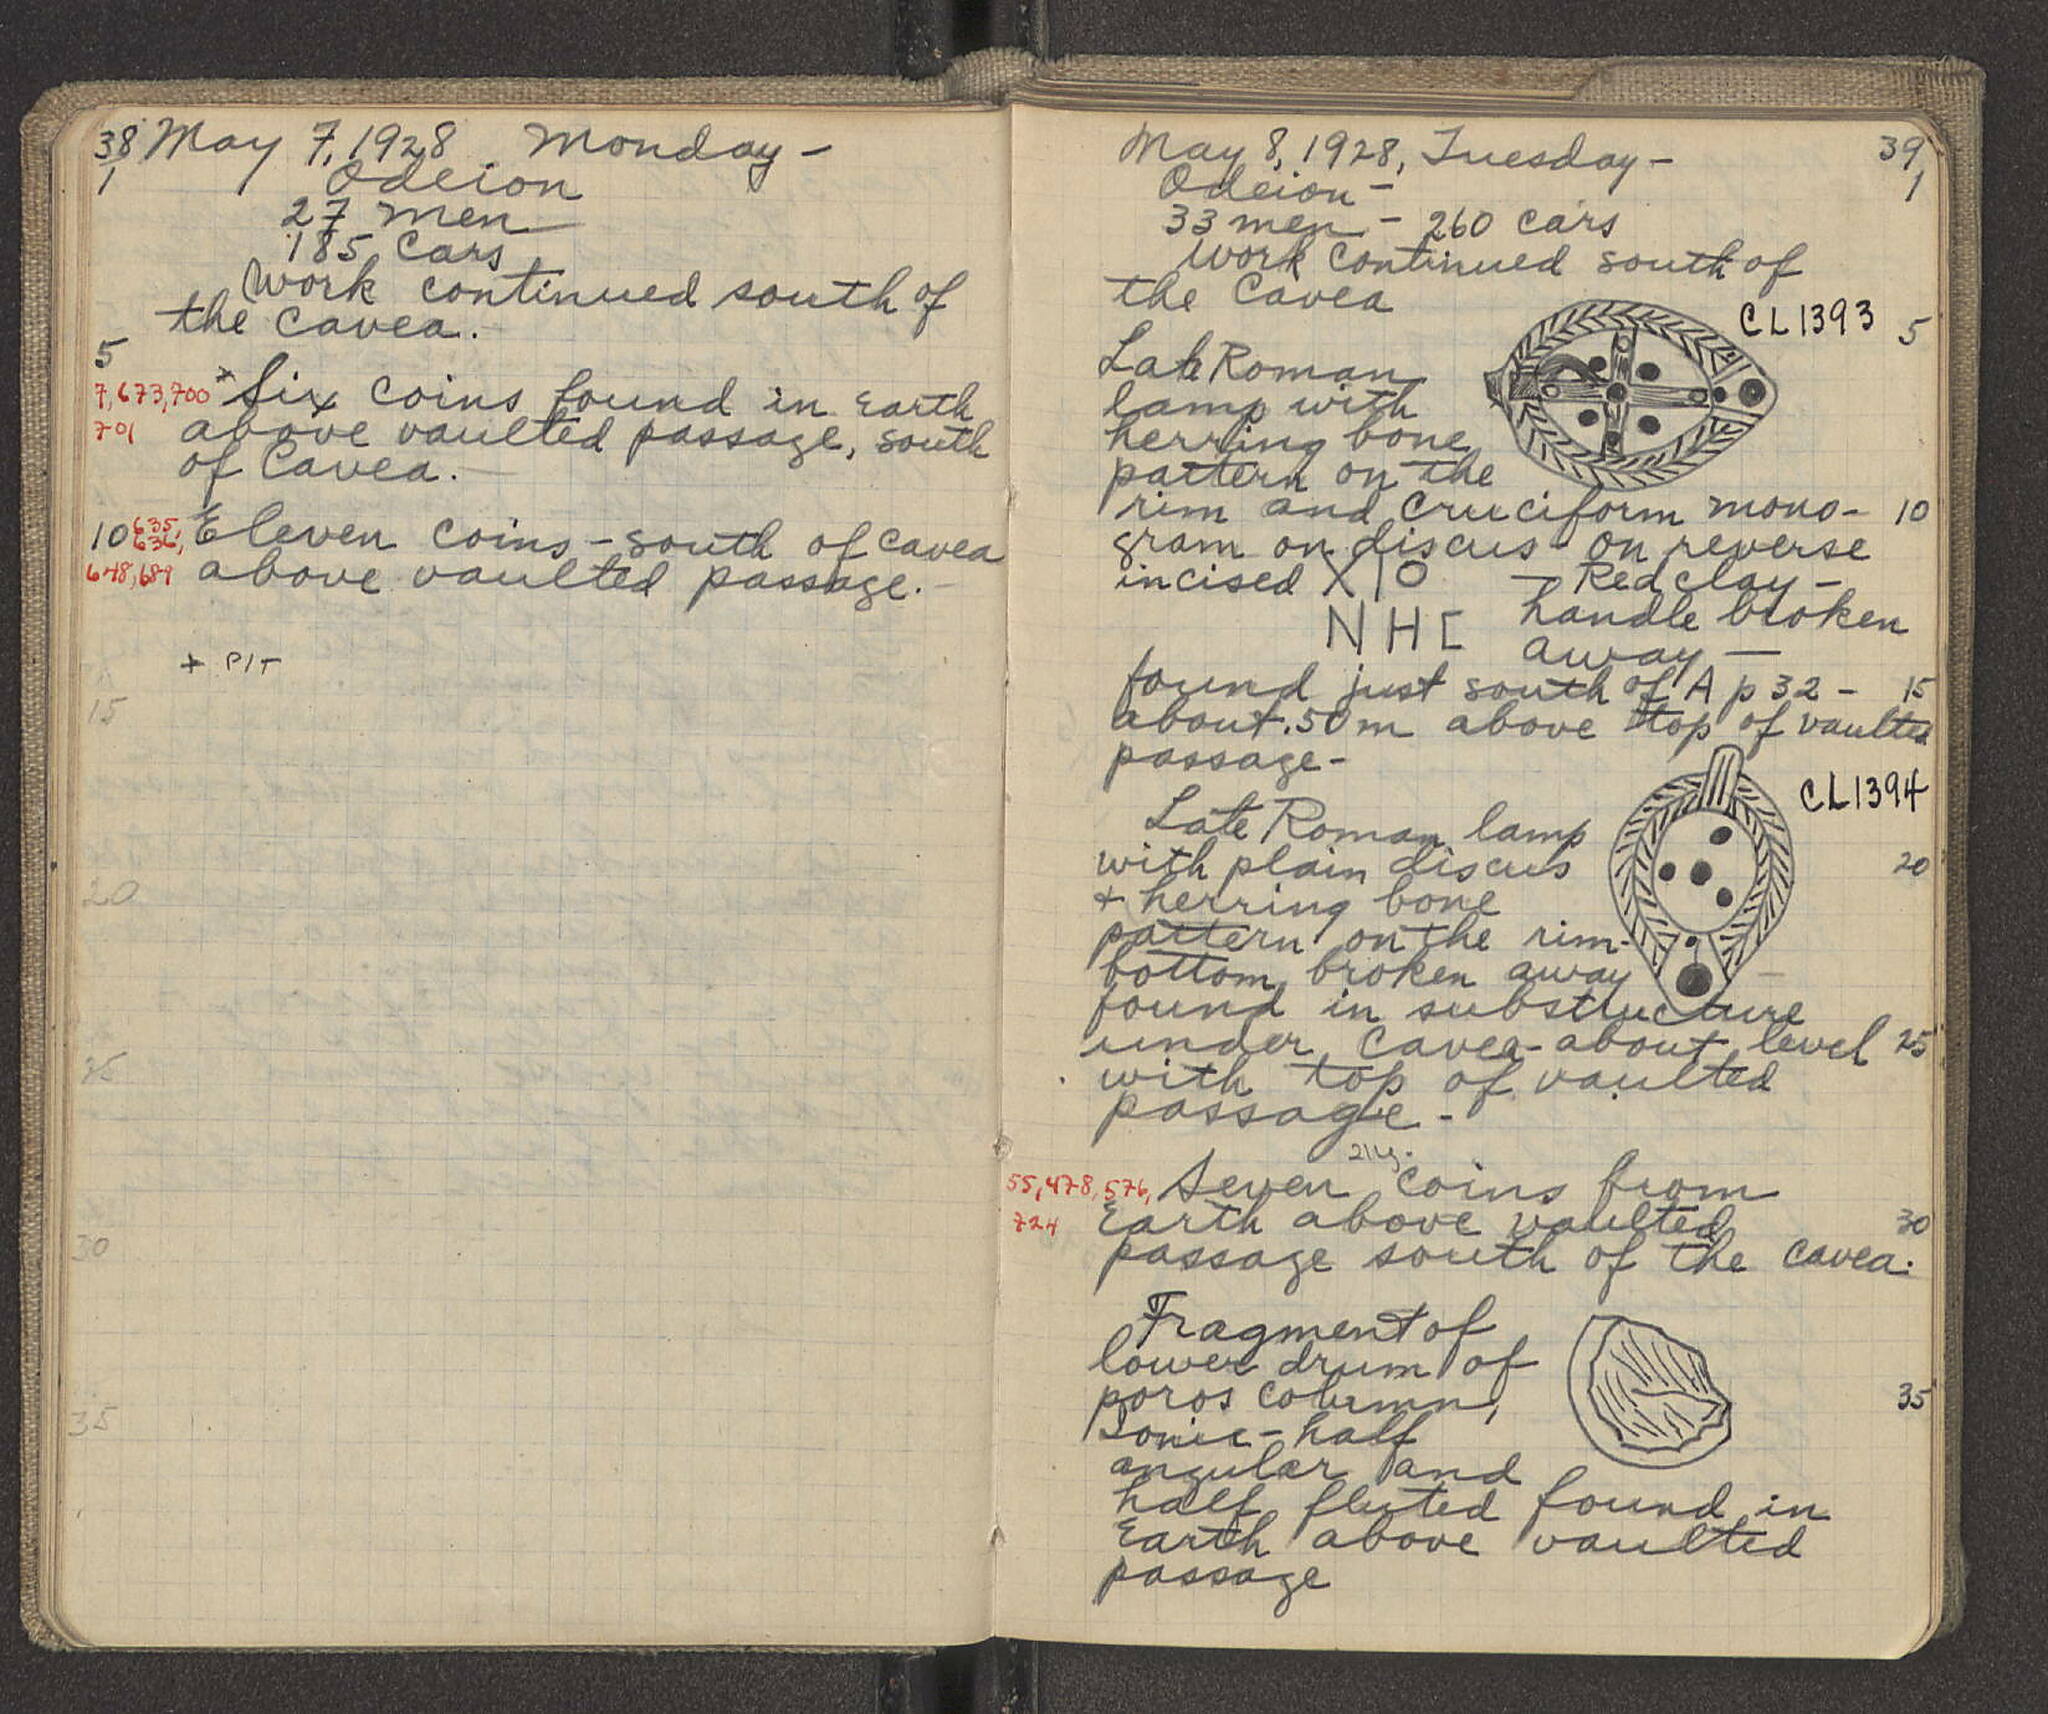 38 May 7, 1928 Monday -
1 Odeion
27 men
185 cars
Work continued south of
the Cavea.
5
7,673,700 + Six coins found in Earth
701 above vaulted passage, south
of Cavea. -
10 635, 636, Eleven coins - south of cavea
648,689 above vaulted passage. -
+ PIT
15
20
25
30
35
May 8, 1928, Tuesday - 39
Odeion - 1
33 men - 260 cars
Work continued south of
the Cavea
CL1393 5
Late Roman
lamp with
herring bone
pattern on the
rim and cruciform mono- 10
gram on discus - on reverse
incised X I O - Red clay -
N H [ handle broken
away -
found just south of A p 32 - 15
about .50m above top of vaulted
passage -
CL1394
Late Roman lamp
with plain discus 20
+ herring bone
pattern on the rim -
bottom broken away -
found in substructure
under cavea - about level 25
with top of vaulted
passage -
55,478,576, Seven coins from
724 Earth above vaulted 30
passage south of the cavea.
Fragment of
lower drum of
poros column, 35
Ionic - half
angular and
half fluted found in
Earth above vaulted
passage